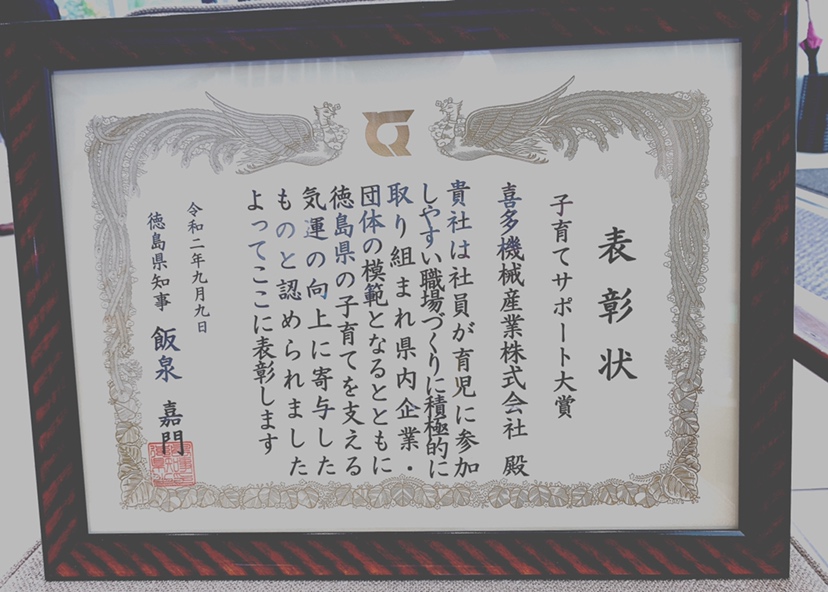 表彰状
子育てサポート大賞
喜多機械産業株式会社 殿
貴社は社員が育児に参加
しやすい職場づくりに積極的に
取り組まれ県内企業・
団体の模範となるとともに
徳島県の子育てを支える
気運の向上に寄与した
ものと認められました
よってここに表彰します
令和二年九月九日
徳島県知事 飯泉 嘉門